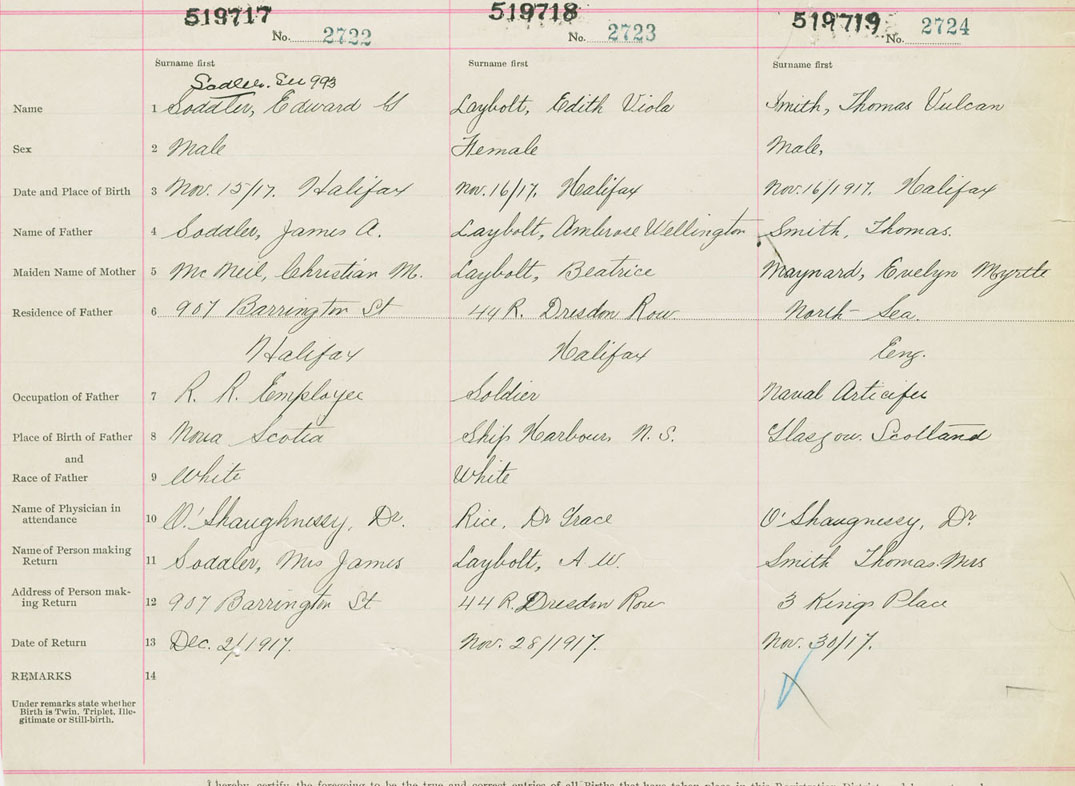 519717 519718 519719
No. 2722 No. 2723 No. 2724
Surname first Surname first Surname first
Sadler. See 993
Name 1 Soddler, Edward G Laybolt, Edith Viola Smith, Thomas Vulcan
Sex 2 Male Female Male,
Date and Place of Birth 3 Nov. 15/17. Halifax Nov. 16/17. Halifax Nov. 16/1917. Halifax
Name of Father 4 Soddler, James A. Laybolt, Ambrose Wellington Smith, Thomas.
Maiden Name of Mother 5 McNeil, Christian M. Laybolt, Beatrice Maynard, Evelyn Myrtle
Residence of Father 6 907 Barrington St 44 R. Dresdon Row. North Sea
Halifax Halifax Eng.
Occupation of Father 7 R. R. Employee Soldier Naval Articifer
Place of Birth of Father 8 Nova Scotia Ship Harbour, N. S. Glasgow. Scotland
and
Race of Father 9 White White
Name of Physician in
attendance 10 O'Shaughnessy, Dr. Rice, Dr Grace O'Shaugnessy, Dr
Name of Person making
Return 11 Soddler, Mrs James Laybolt, A. W. Smith Thomas. Mrs
Address of Person mak-
ing Return 12 907 Barrington St 44 R. Dresdon Row 3 Kings Place
Date of Return 13 Dec. 2/1917. Nov. 28/1917. Nov. 30/17.
REMARKS 14
Under remarks state whether
Birth is Twin, Triplet, Ille-
gitimate or Still-birth.
I hereby certify the foregoing to be the true and correct entries of all Births that have taken place in this Registration District